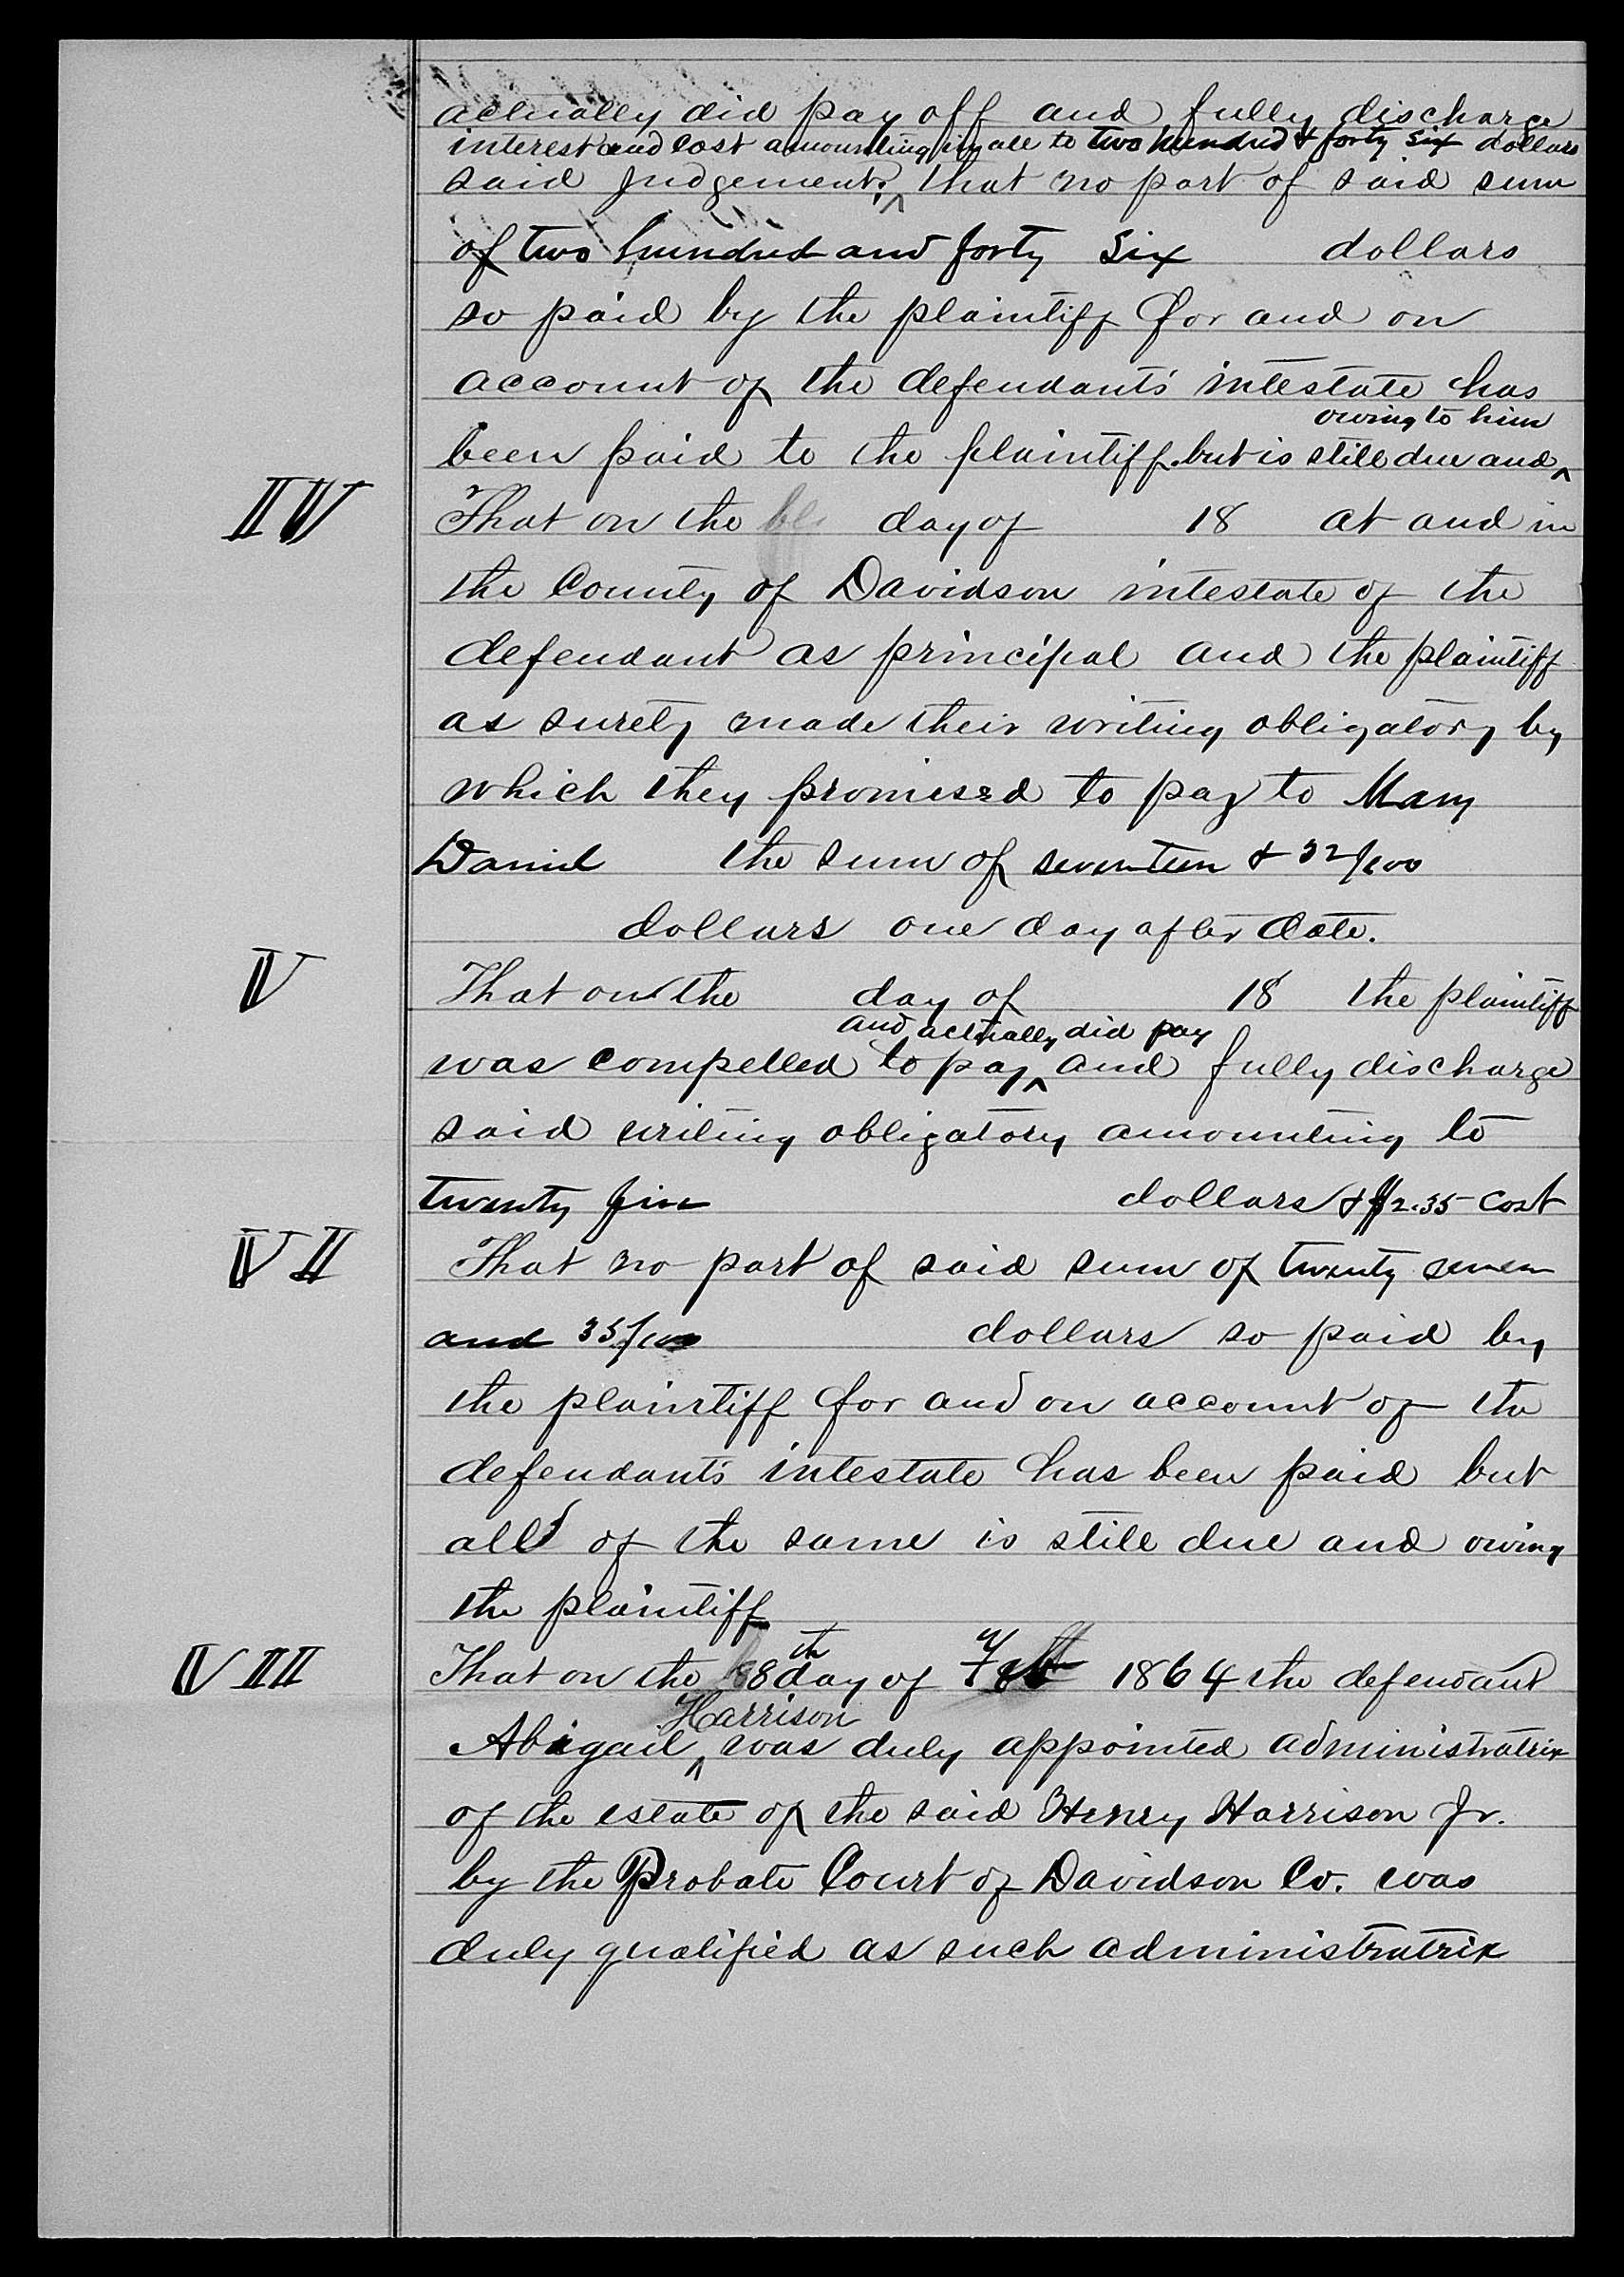 actually did pay off and fully discharge
interest and cost amounting in all to two hundred & forty six dollars
said judgement. ^ that no part of said sum
of two hundred and forty six dollars
so paid by the plaintiff for and on
account of the defendant's intestate has
owing to him
been paid to the plaintiff. but is still due and ^
IV That on the day of 18 at and in
the County of Davidson intestate of the
defendant as principal and the plaintiff
as surety made their writing obligatory by
which they promised to pay to Mary
Daniel the sum of seventeen & 32/100
dollars one day after date.
V That on the day of 18 the plaintiff
and actually did pay
was compelled to pay ^ and fully discharge
said writing obligatory amounting to
twenty five dollars & $2.35 cost
VI That no part of said sum of twenty seven
and 35/100 dollars so paid by
the plaintiff for and on account of the
defendant's intestate has been paid but
all of the same is still due and owing
the plaintiff
VII That on the 8th day of 1864 the defendant
Harrison
Abigail ^ was duly appointed administratrix
of the estate of the said Henry Harrison Jr.
by the Probate Court of Davidson Co. was
duly qualified as such administratrix